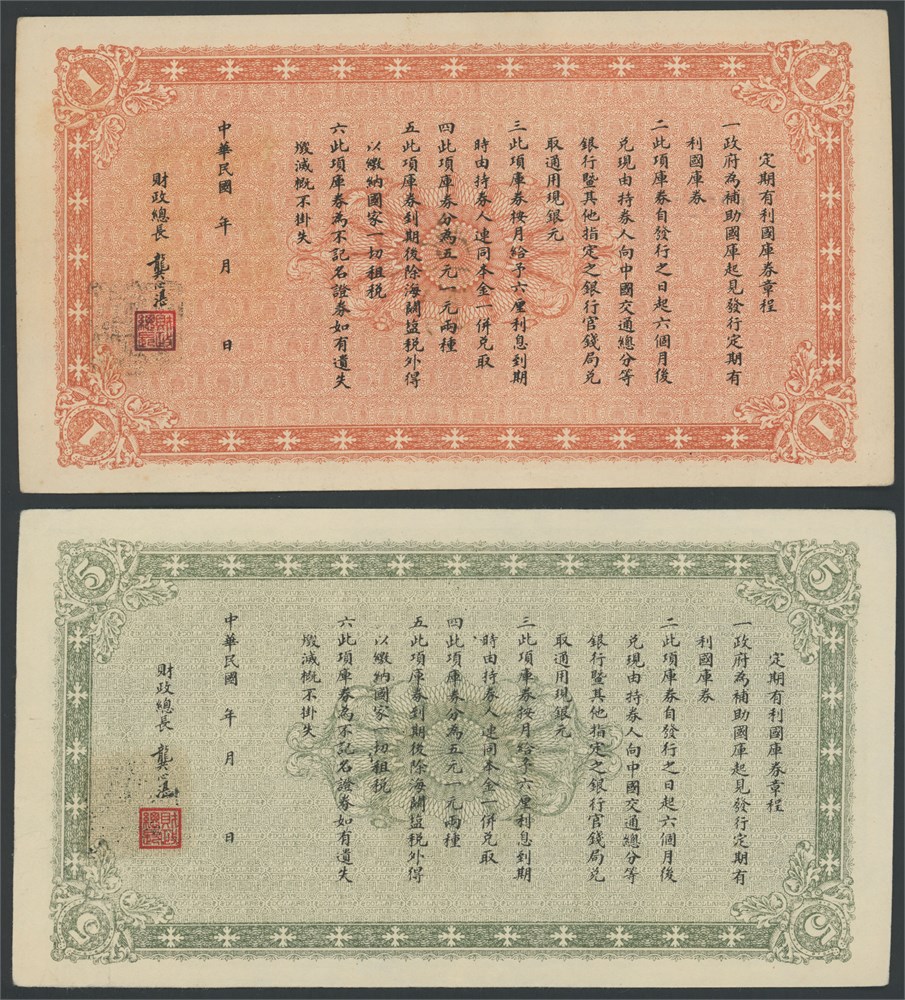 1
1
定期有利國庫券章程
一政府為補助國庫起見發行定期有
利國庫券
二此項庫券自發行之日起六個月後
兌現由持券人向中國交通總分等
銀行暨其他指定之銀行官錢局兌
取通用現銀元
三此項庫券按月給予六厘利息到期
時由持券人連同本金一併兌取
四此項庫券分為五元一元兩種
五此項庫券到期後除海關鹽税外得
以繳納國家一切租税
六此項庫券為不記名證券如有遺失
燬滅概不掛失
中華民國 年 月 日
財政總長 龔心湛
財政總長
1
1
5
5
定期有利國庫券章程
一政府為補助國庫起見發行定期有
利國庫券
二此項庫券自發行之日起六個月後
兌現由持券人向中國交通總分等
銀行暨其他指定之銀行官錢局兌
取通用現銀元
三此項庫券按月給予六厘利息到期
時由持券人連同本金一併兌取
四此項庫券分為五元一元兩種
五此項庫券到期後除海關鹽税外得
以繳納國家一切租税
六此項庫券為不記名證券如有遺失
燬滅概不掛失
中華民國 年 月 日
財政總長 龔心湛
財政總長
5
5